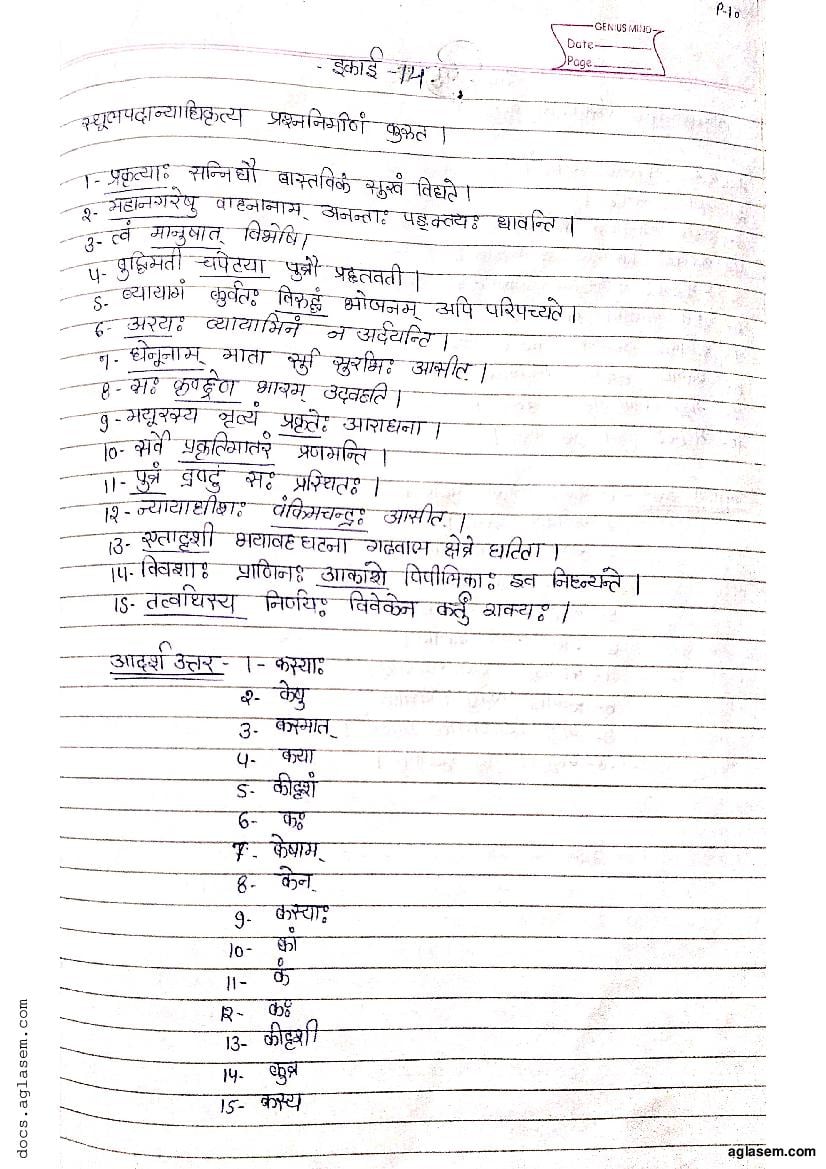 P-10
GENIUS MIND
Date
Page
इकाई - 14
स्थूलपदान्याधिकृत्य प्रश्ननिर्माणं कुरुत ।
1- प्रकृत्याः सन्निधौ वास्तविकं सुखं विद्यते ।
2- महानगरेषु वाहनानाम् अनन्ताः पङ्क्तयः धावन्ति ।
3- त्वं मानुषात् विभेषि ।
4- बुद्धिमती चपेटया पुत्रौ प्रहृतवती ।
5- व्यायामं कुर्वतः विरुद्धं भोजनम् अपि परिपच्यते ।
6- अरयः व्यायामिनं न अर्दयन्ति ।
7- धेनूनाम् माता सुरभिः आसीत् ।
8- सः कृषद्रेण भारम् उदवहति ।
9- मयूरस्य नृत्यं प्रकृतेः आराधना ।
10- सर्वे प्रकृतिमातरं प्रणमन्ति ।
11- पुत्रं द्रष्टुं सः प्रस्थितः ।
12- न्यायाधीशः वंकिमचन्द्रः आसीत् ।
13- एतादृशी भयावह घटना गढवाल क्षेत्रे घटिता ।
14- विवशाः प्राणिनः आकाशे पिपीलिकाः इव निहन्यन्ते ।
15- तत्वार्थस्य निर्णयः विवेकेन कर्तुं शक्यः ।
आदर्श उत्तर - 1 - कस्याः
2- केषु
3- कस्मात्
4- कया
5- कीदृशं
6- कः
7- केषाम्
8- केन
9- कस्याः
10- कां
11- कं
12- कः
13- कीदृशी
14- कुत्र
15- कस्य
docs.aglasem.com
aglasem.com